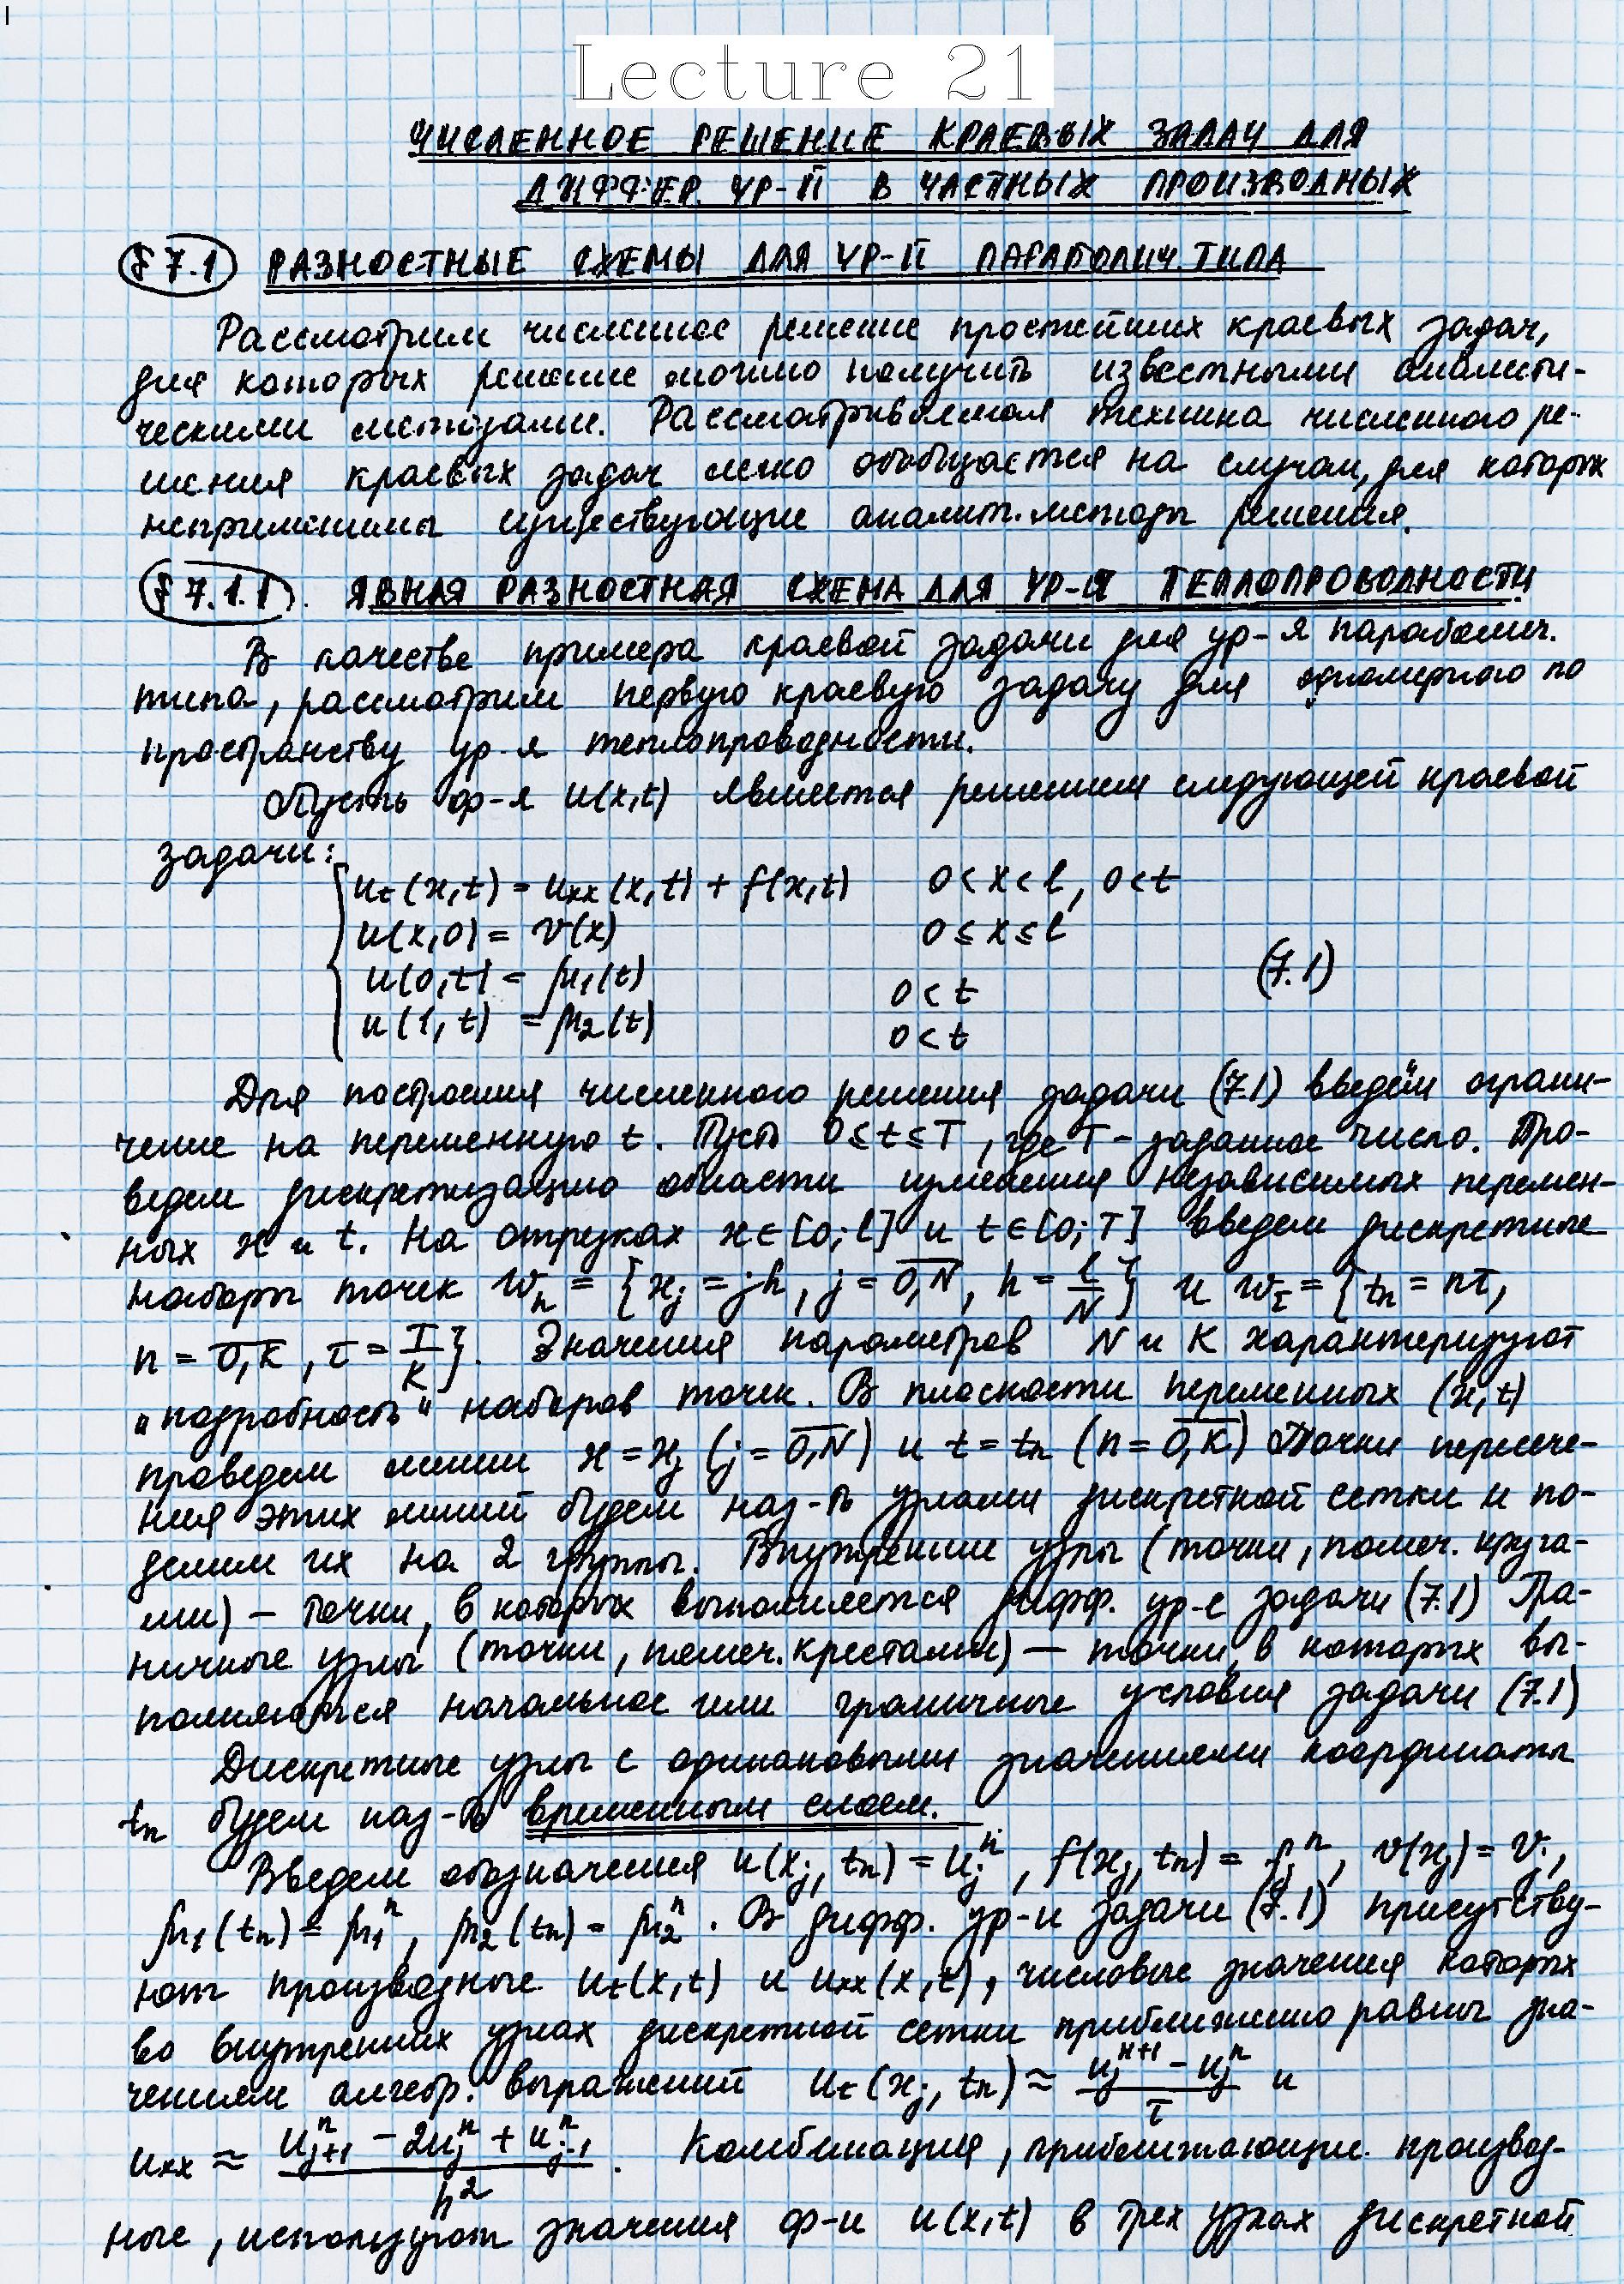 Lecture 21
ЧИСЛЕННОЕ РЕШЕНИЕ КРАЕВЫХ ЗАДАЧ ДЛЯ
ДИФФЕР. УР-Й В ЧАСТНЫХ ПРОИЗВОДНЫХ
§ 7.1 РАЗНОСТНЫЕ СХЕМЫ ДЛЯ УР-Й ПАРАБОЛИЧ. ТИПА
Рассмотрим численное решение простейших краевых задач,
для которых решение можно получить известными аналити-
ческими методами. Рассматриваемая техника численного ре-
шения краевых задач легко обобщается на случаи, для которых
неприменимы существующие аналит. методы решения.
§ 7.1.1. ЯВНАЯ РАЗНОСТНАЯ СХЕМА ДЛЯ УР-Я ТЕПЛОПРОВОДНОСТИ
В качестве примера краевой задачи для ур-я параболич.
типа, рассмотрим первую краевую задачу для одномерного по
пространству ур-я теплопроводности.
Пусть ф-я u(x,t) является решением следующей краевой
задачи:
u_t(x,t) = u_xx(x,t) + f(x,t) 0<x<l, 0<t
u(x,0) = v(x) 0≤x≤l
u(0,t) = μ₁(t) 0<t (7.1)
u(1,t) = μ₂(t) 0<t
Для построения численного решения задачи (7.1) введём ограни-
чение на переменную t. Пусть 0≤t≤T, где T - заданное число. Про-
ведем дискретизацию области изменения независимых перемен-
ных x и t. На отрезках x∈[0;l] и t∈[0;T] введем дискретные
наборы точек w_h = {x_j = jh, j = 0,N, h = l/N} и w_τ = {t_n = nτ,
n = 0,K, τ = T/K}. Значения параметров N и K характеризуют
"подробность" наборов точек. В плоскости переменных (x,t)
проведем линии x = x_j (j = 0,N) и t = t_n (n = 0,K) Точки пересече-
ния этих линий будем наз-ть узлами дискретной сетки и по-
делим их на 2 группы. Внутренние узлы (точки, помеч. круга-
ми) - точки, в которых выполняется дифф. ур-е задачи (7.1) Гра-
ничные узлы (точки, помеч. крестами) — точки, в которых вы-
полняются начальное или граничные условия задачи (7.1)
Дискретные узлы с одинаковыми значениями координаты
t_n будем наз-ть временным слоем.
Введем обозначения u(x_j, t_n) = u_j^n, f(x_j, t_n) = f_j^n, v(x_j) = v_j,
μ₁(t_n) = μ₁^n, μ₂(t_n) = μ₂^n. В дифф. ур-и задачи (7.1) присутству-
ют производные u_t(x,t) и u_xx(x,t), числовые значения которых
во внутренних узлах дискретной сетки приближенно равны зна-
чениям алгебр. выражений u_t(x_j, t_n) ≈ (u_j^{n+1} - u_j^n)/τ и
u_xx ≈ (u_{j+1}^n - 2u_j^n + u_{j-1}^n)/h². Комбинации, приближающие производ-
ные, используют значения ф-и u(x,t) в трех узлах дискретной